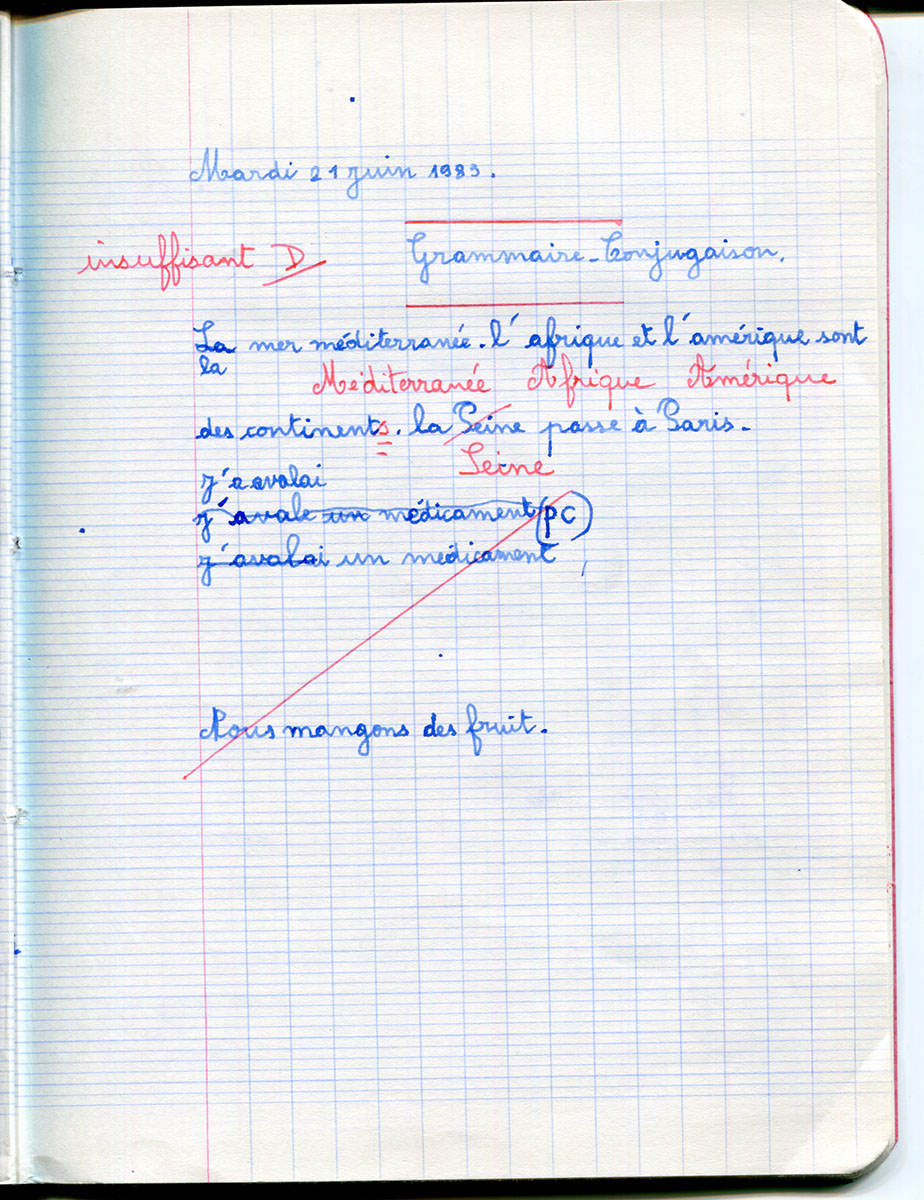 Mardi 21 juin 1983.
insuffisant D Grammaire-Conjugaison.
La mer méditerranée. l'afrique et l'amérique sont
la Méditerranée Afrique Amérique
des continents. la Seine passe à Paris.
Seine
j'avalai
j'avale un médicament (pc)
j'avalai un médicament
Nous mangons des fruit.